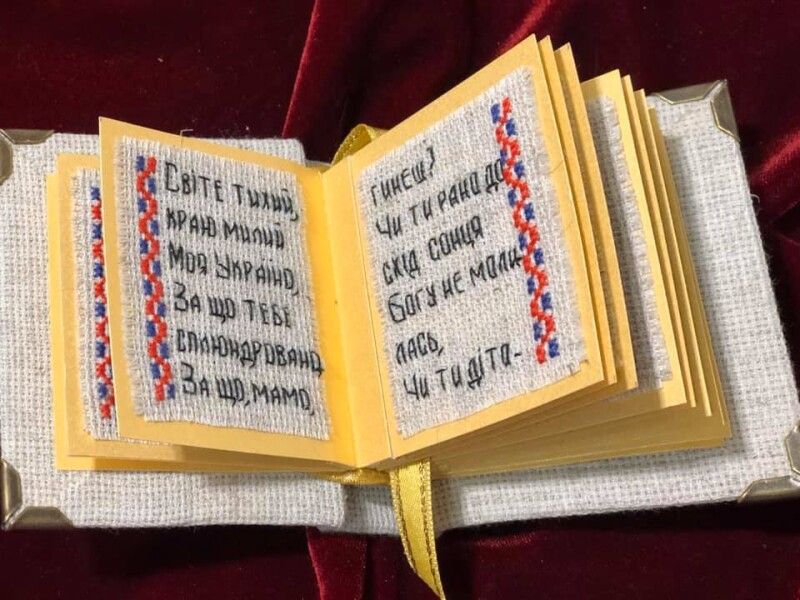 Світе тихий,
краю милий
Моя Україно,
За що тебе
сплюндровано,
За що, мамо,
гинеш?
Чи ти рано до
схід сонця
Богу не моли
лась,
Чи ти діто-